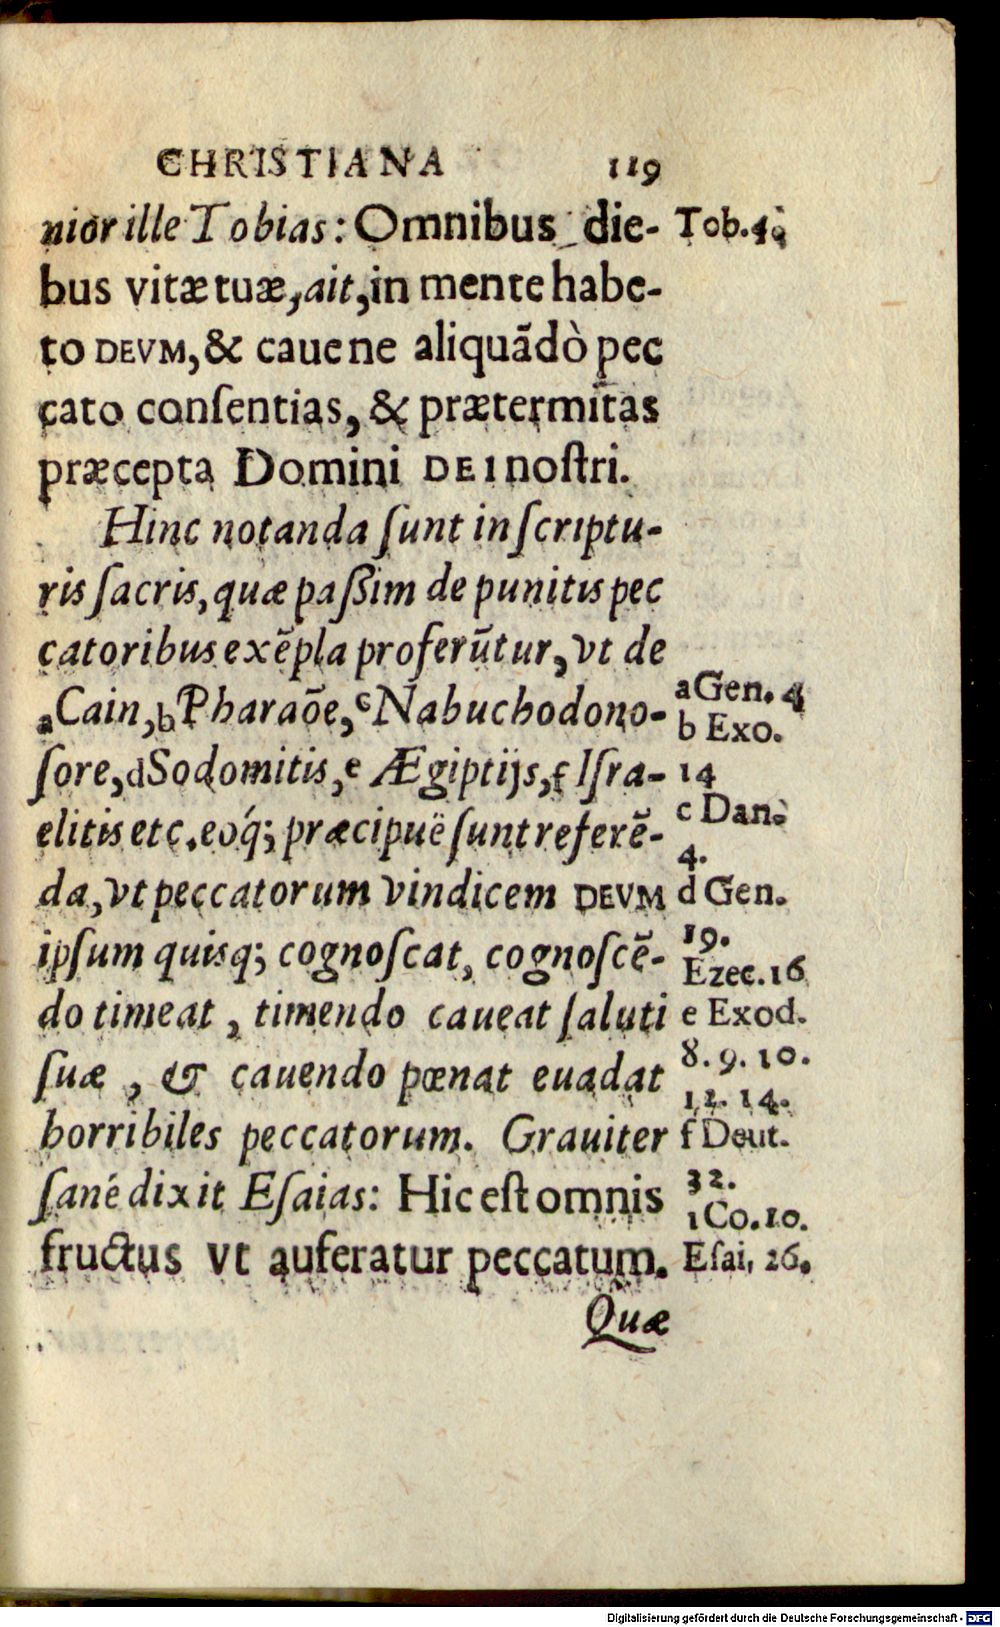 CHRISTIANA 119
nior ille Tobias: Omnibus die-
bus vitæ tuæ, ait, in mente habe-
to DEVM, & caue ne aliquãdò pec
cato conſentias, & prætermittas
præcepta Domini DEI noſtri.
Hinc notanda ſunt in ſcriptu-
ris ſacris, quæ paßim de punitis pec
catoribus exẽpla proferũtur, vt de
a Cain, b Pharaõe, c Nabuchodono-
ſore, d Sodomitis, e Ægiptijs, f Iſra-
elitis etc. eoq́; præcipuè ſunt referẽ-
da, vt peccatorum vindicem DEVM
ipſum quisq; cognoſcat, cognoſcẽ-
do timeat, timendo caueat ſaluti
ſuæ, & cauendo pœnat euadat
horribiles peccatorum. Grauiter
ſanè dixit Eſaias: Hic eſt omnis
fructus vt auferatur peccatum.
Quæ
Tob. 4.
a Gen. 4
b Exo.
14
c Dan.
4.
d Gen.
19.
Ezec. 16
e Exod.
8. 9. 10.
12. 14.
f Deut.
32.
1 Co. 10.
Eſai, 26.
Digitalisierung gefördert durch die Deutsche Forschungsgemeinschaft - DFG